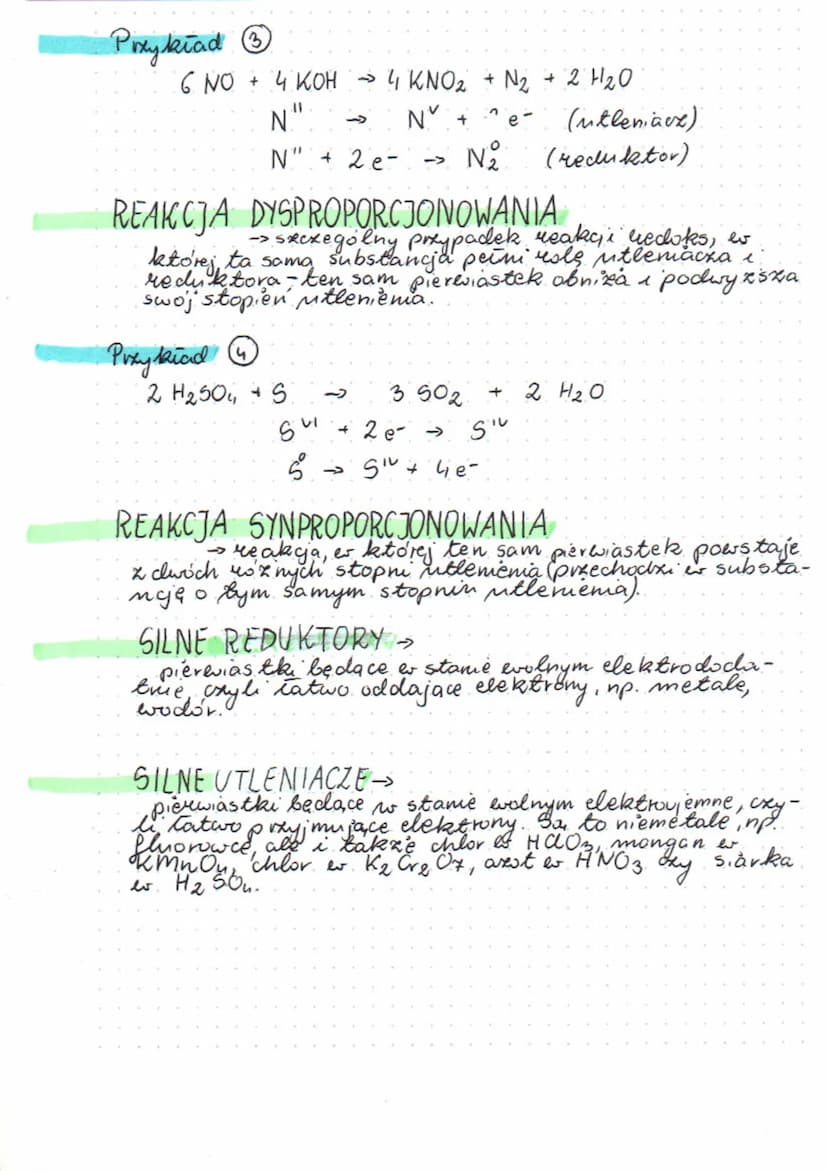 Przykład ③
6 NO + 4 KOH → 4 KNO₂ + N₂ + 2 H₂O
Nᴵᴵ → Nⱽ + e⁻ (utleniacz)
Nᴵᴵ + 2 e⁻ → N₂⁰ (reduktor)
REAKCJA DYSPROPORCJONOWANIA
→ szczególny przypadek reakcji redoks, w
której ta sama substancja pełni rolę utleniacza i
reduktora - ten sam pierwiastek obniża i podwyższa
swój stopień utlenienia.
Przykład ④
2 H₂SO₄ + S → 3 SO₂ + 2 H₂O
Sⱽᴵ + 2 e⁻ → Sᴵⱽ
S⁰ → Sᴵⱽ + 4e⁻
REAKCJA SYNPROPORCJONOWANIA
→ reakcja, w której ten sam pierwiastek powstaje
z dwóch różnych stopni utlenienia (przechodzi w substa-
ncję o tym samym stopniu utlenienia).
SILNE REDUKTORY →
pierwiastki będące w stanie wolnym elektrododa-
tnie, czyli łatwo oddające elektrony, np. metale,
wodór.
SILNE UTLENIACZE →
pierwiastki będące w stanie wolnym elektroujemne, czy-
li łatwo przyjmujące elektrony. Są to niemetale, np.
fluorowce, ale i także chlor w HClO₃, mangan w
KMnO₄, chlor w K₂Cr₂O₇, azot w HNO₃ czy siarka
w H₂SO₄.